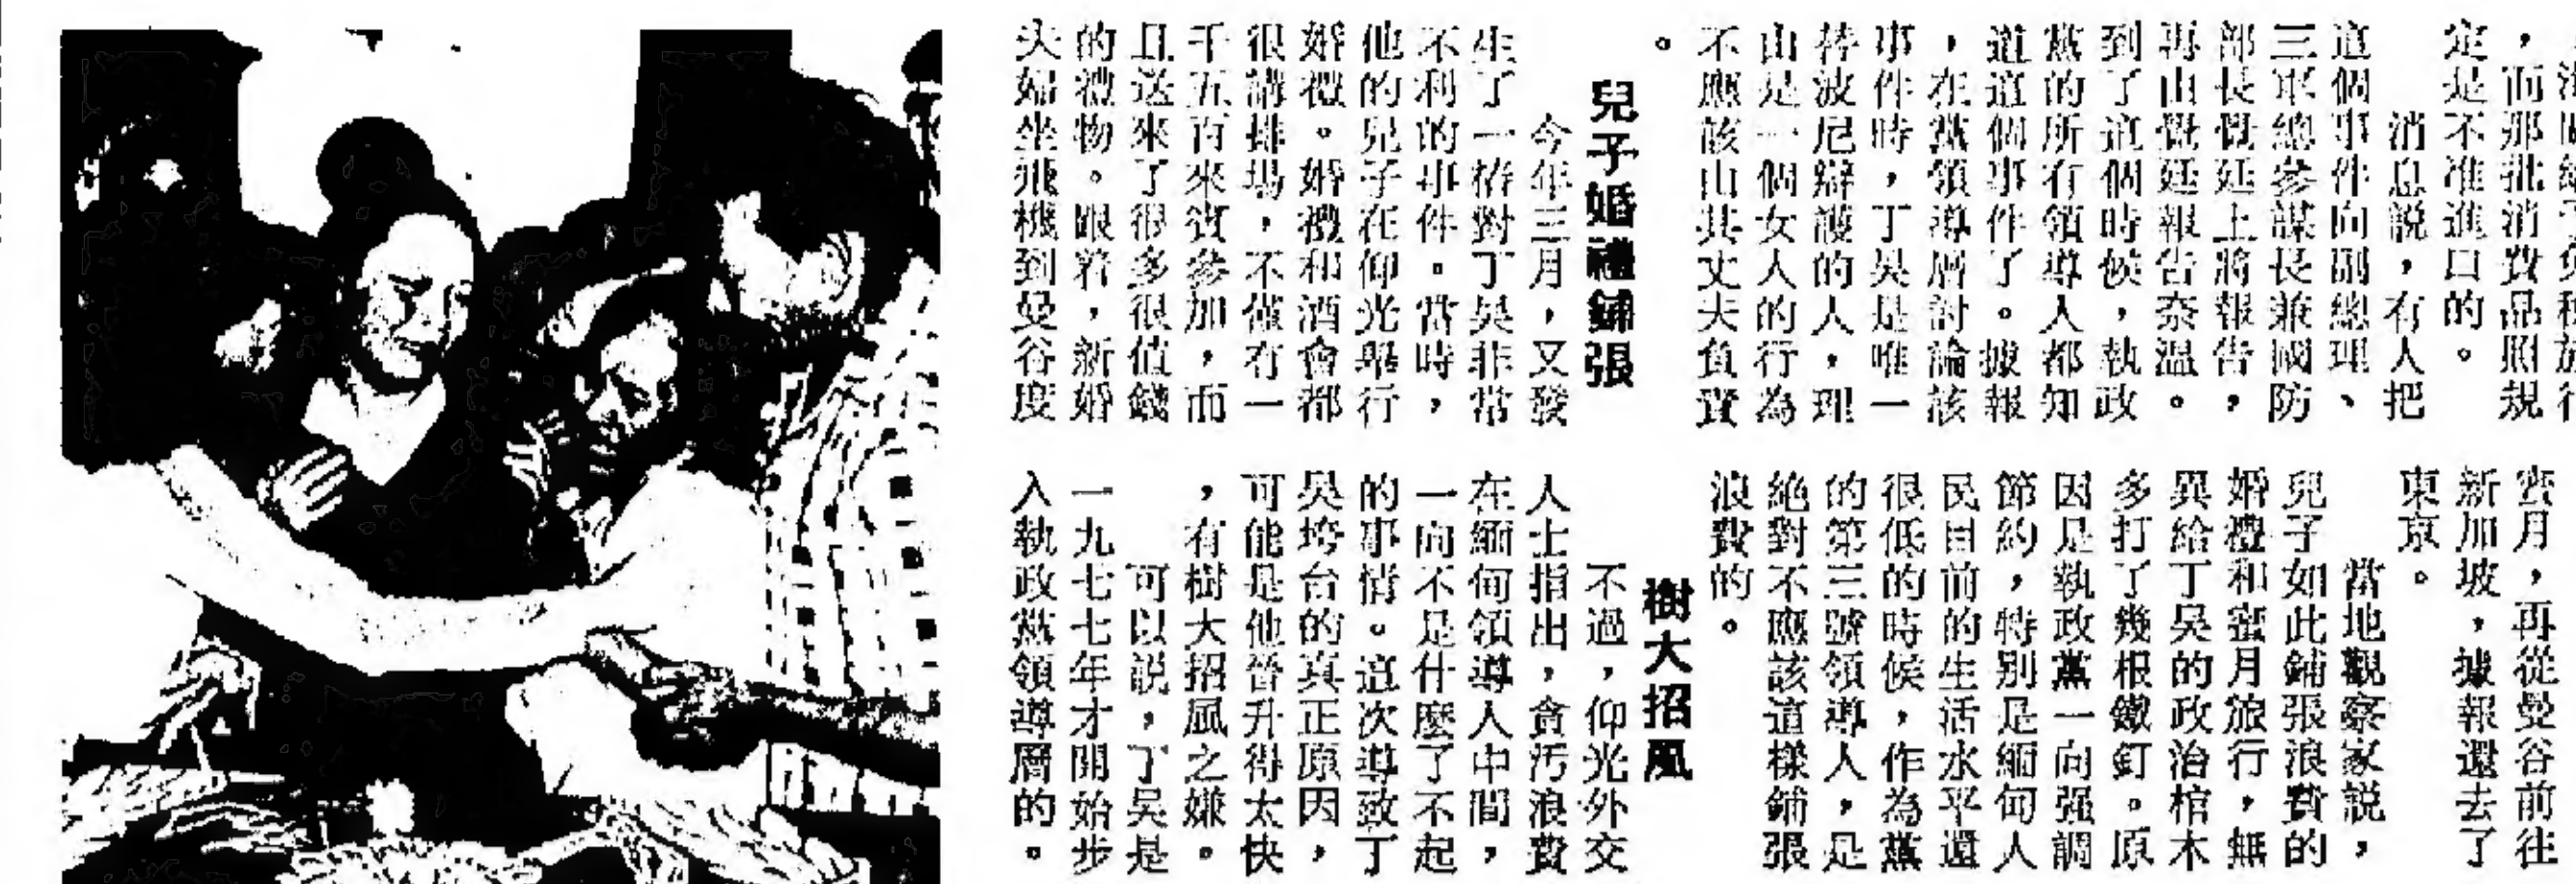 ，而那批消費品照規
定是不准進口的。
消息說，有人把
這個事件向副總理、
三軍總參謀長兼國防
部長覺廷上將報告，
再由覺廷報告奈溫。
到了這個時候，執政
黨的所有領導人都知
道這個事件了。據報
，在黨領導層討論該
事件時，丁吳是唯一
替波尼辯護的人，理
由是一個女人的行為
不應該由其丈夫負責
。
兒子婚禮鋪張
今年三月，又發
生了一樁對丁吳非常
不利的事件。當時，
他的兒子在仰光舉行
婚禮。婚禮和酒會都
很講排場，不僅有一
千五百來賓參加，而
且送來了很多很值錢
的禮物。跟着，新婚
夫婦坐飛機到曼谷度
蜜月，再從曼谷前往
新加坡，據報還去了
東京。
當地觀察家說，
兒子如此鋪張浪費的
婚禮和蜜月旅行，無
異給丁吳的政治棺木
多打了幾根鐵釘。原
因是執政黨一向强調
節約，特別是緬甸人
民目前的生活水平還
很低的時候，作為黨
的第三號領導人，是
絕對不應該這樣鋪張
浪費的。
樹大招風
不過，仰光外交
人士指出，貪汚浪費
在緬甸領導人中間，
一向不是什麼了不起
的事情。這次導致丁
吳垮台的真正原因，
可能是他晉升得太快
，有樹大招風之嫌。
可以說，丁吳是
一九七七年才開始步
入執政黨領導層的。